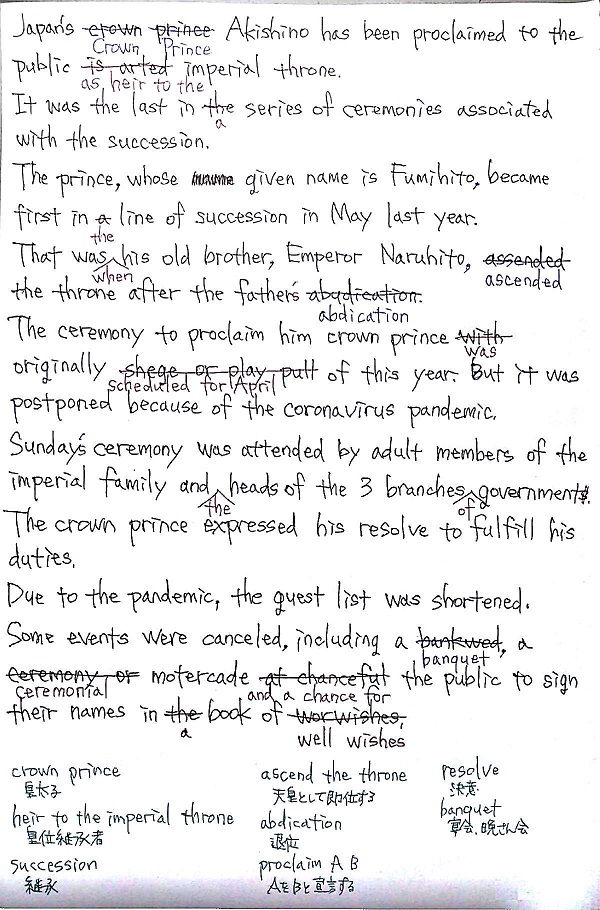 Japan's crown prince Akishino has been proclaimed to the
Crown Prince
public is arted imperial throne.
as heir to the
It was the last in the series of ceremonies associated
a
with the succession.
The prince, whose given name is Fumihito, became
first in a line of succession in May last year.
the
That was his old brother, Emperor Naruhito, assended
when ascended
the throne after the father's abudication.
abdication
The ceremony to proclaim him crown prince with
was
originally shege or play pult of this year. But it was
scheduled for April
postponed because of the coronavirus pandemic.
Sunday's ceremony was attended by adult members of the
imperial family and heads of the 3 branches governments.
the of
The crown prince expressed his resolve to fulfill his
duties.
Due to the pandemic, the guest list was shortened.
Some events were canceled, including a bankwed, a
banquet,
ceremony or motercade at chanceful the public to sign
ceremonial and a chance for
their names in the book of worwishes,
a well wishes
crown prince ascend the throne resolve
皇太子 天皇として即位する 決意
heir to the imperial throne abdication banquet
皇位継承者 退位 宴会、晩さん会
succession proclaim A B
継承 AをBと宣言する